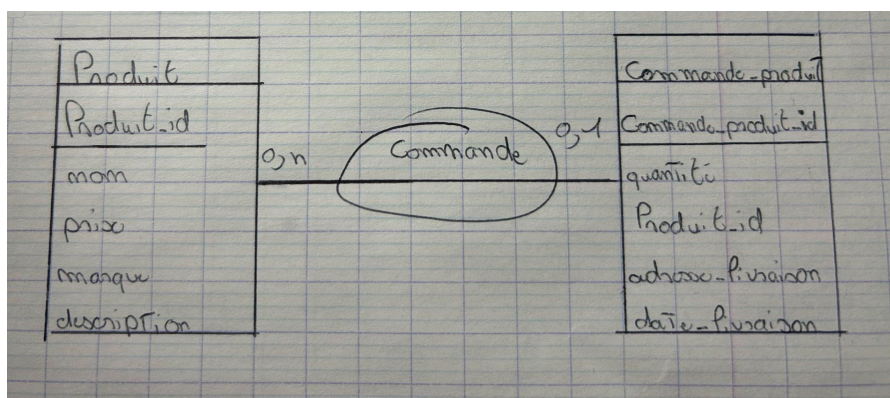 Produit
Produit_id
nom
prix
marque
description
0,n
Commande
0,1
Commande_produit
Commande_produit_id
quantité
Produit_id
adresse_livraison
date_livraison